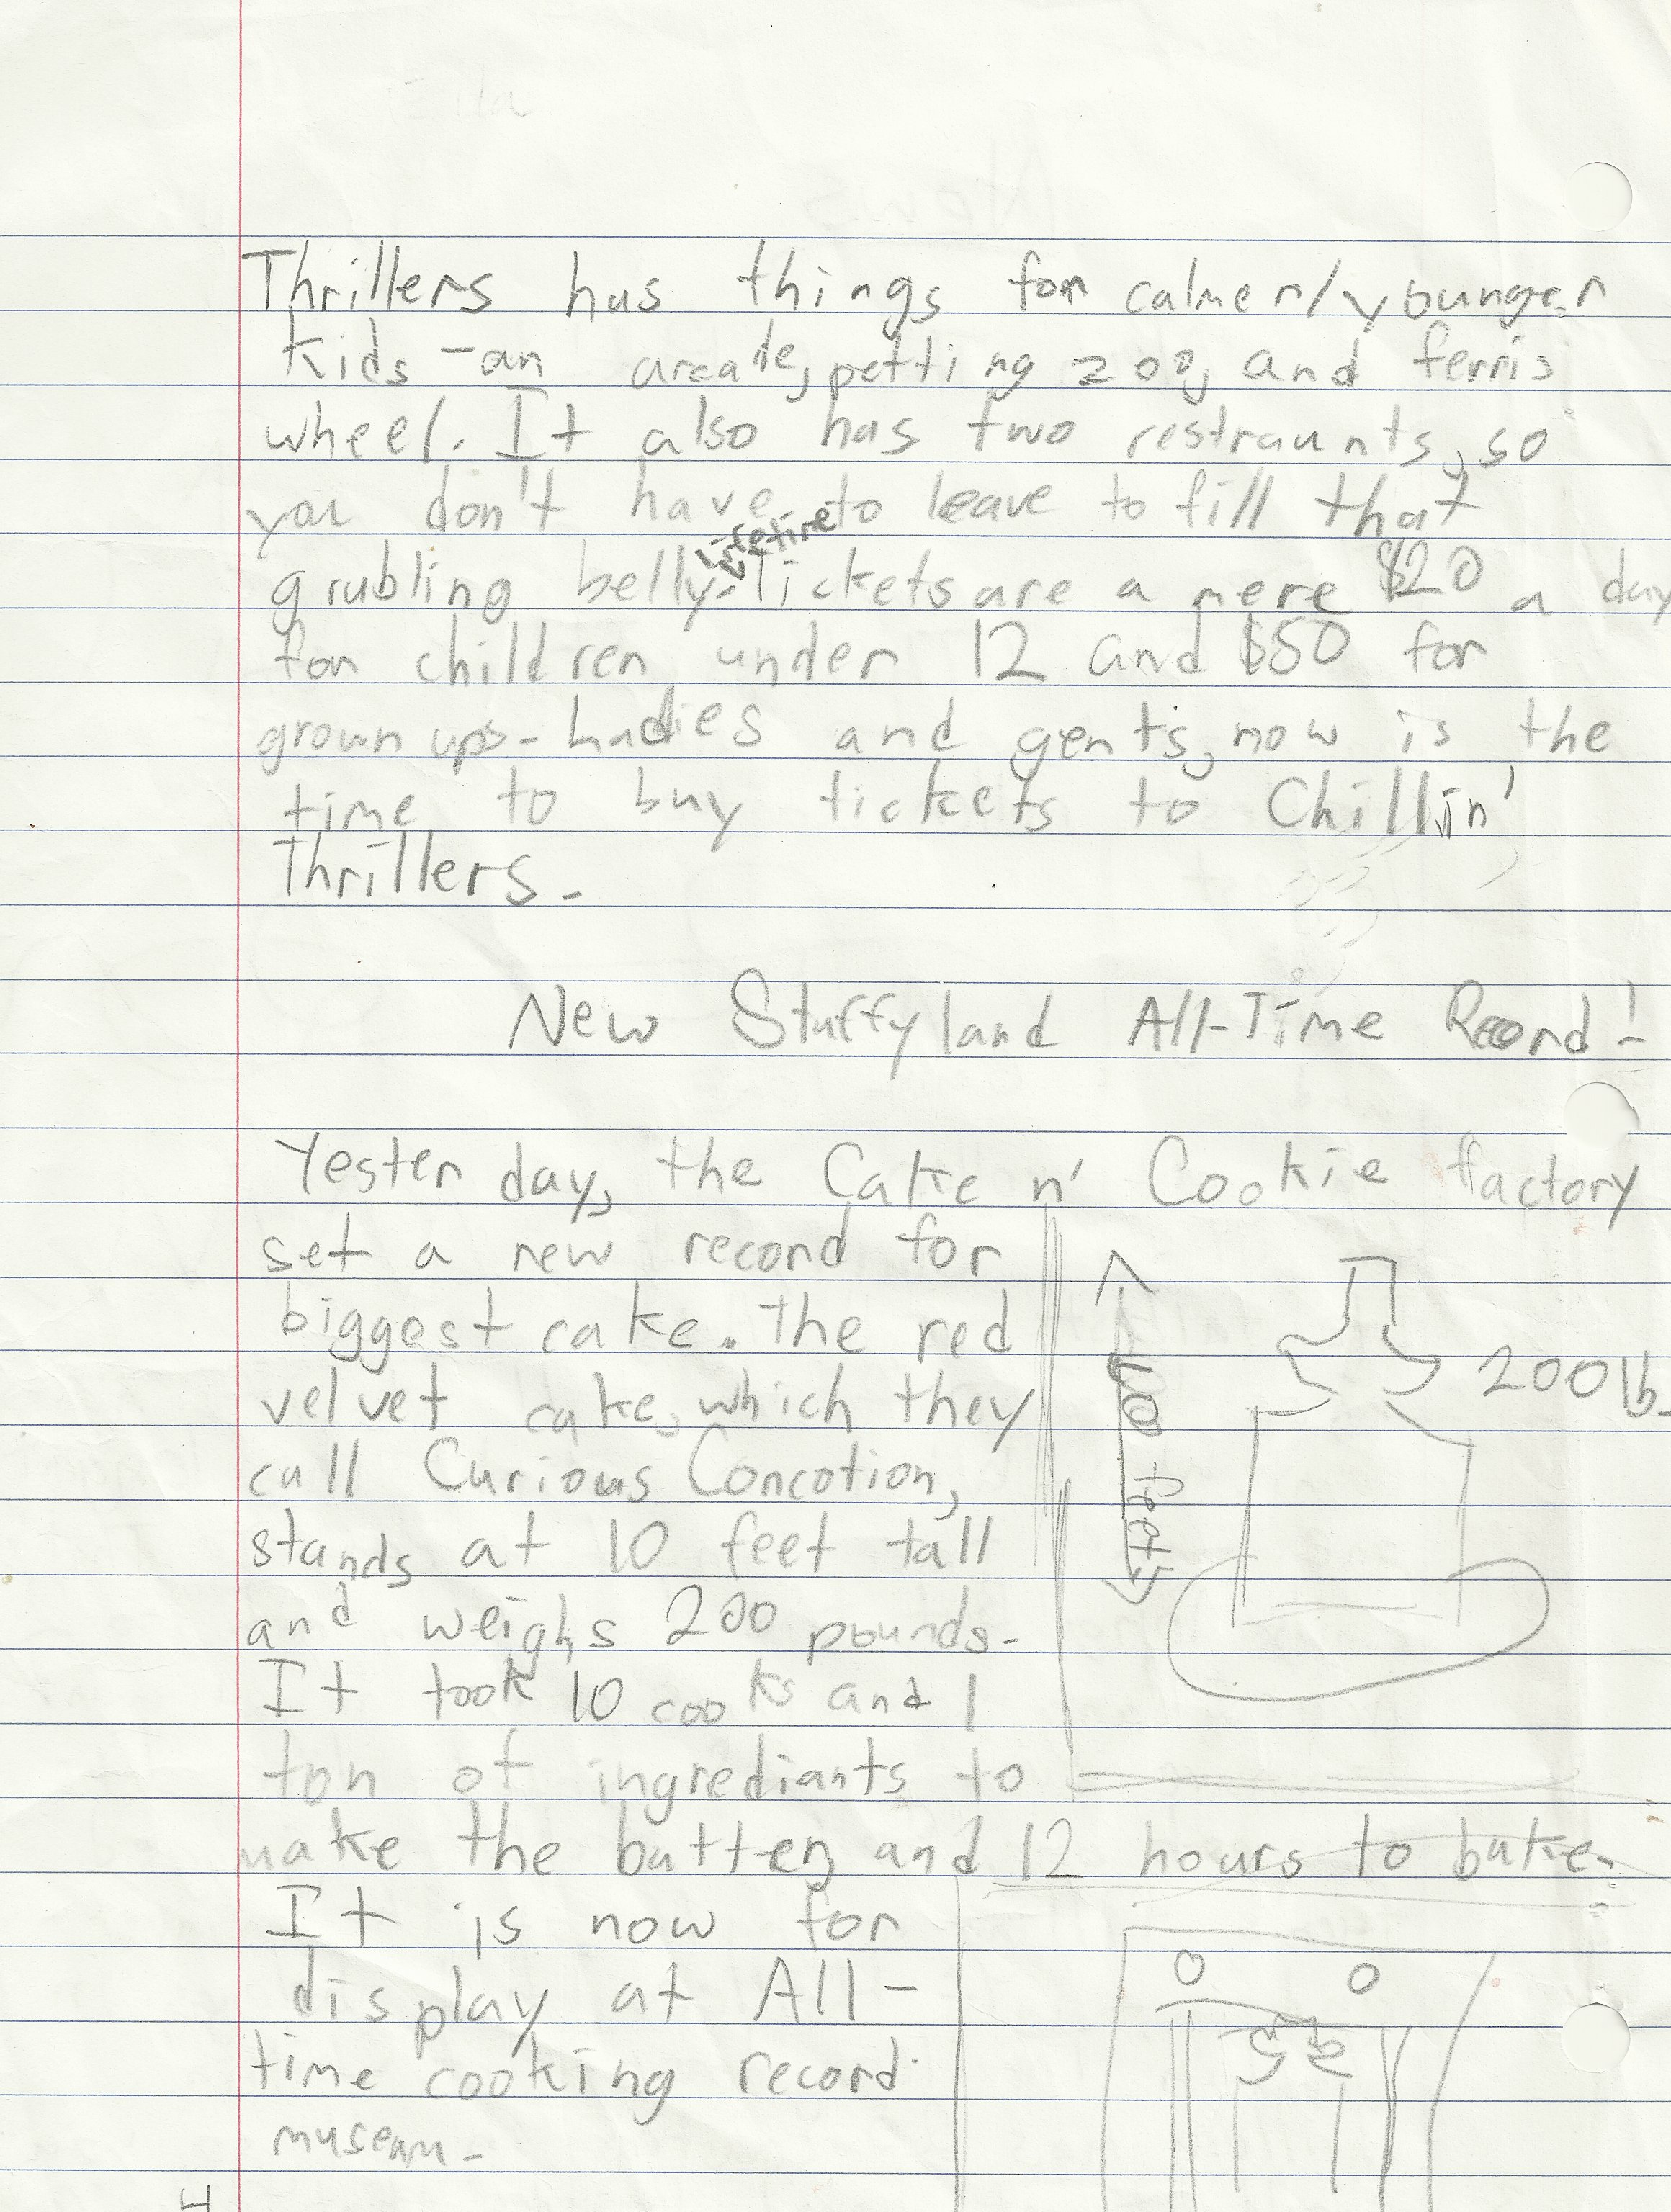 Thrillers has things for calmer/younger
kids - an arcade, petting zoo, and ferris
wheel. It also has two restraunts, so
you don't have to leave to fill that
Lifetime
grubling belly. Tickets are a mere $20 a day
for children under 12 and $50 for
grown ups - Ladies and gents, now is the
time to buy tickets to Chillin'
Thrillers.
New Stuffyland All-Time Record!
Yesterday, the Cake n' Cookie factory
set a new record for
biggest cake. The red
velvet cake, which they
call Curious Concotion,
stands at 10 feet tall
and weighs 200 pounds.
It took 10 cooks and 1
ton of ingrediants to
make the batter, and 12 hours to bake.
It is now for
display at All-
time cooking record
museam.
10 feet
200 lb.